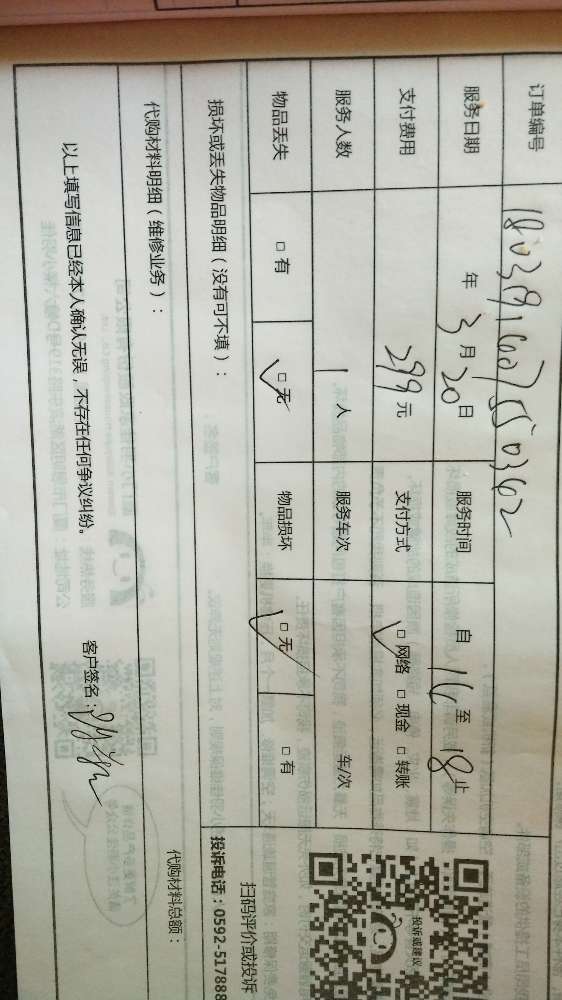 订单编号 1803191607550362
服务日期 年 3 月 20 日 服务时间 自 16 至 18 止
支付费用 299 元 支付方式 □网络 □现金 □转账
服务人数 1 人 服务车次 车/次
物品丢失 □有 □无 物品损坏 □无 □有
损坏或丢失物品明细（没有可不填）：
代购材料明细（维修业务）： 代购材料总额：
以上填写信息已经本人确认无误，不存在任何争议纠纷。 客户签名：
投诉或建议
扫码评价或投诉
投诉电话：0592-517888